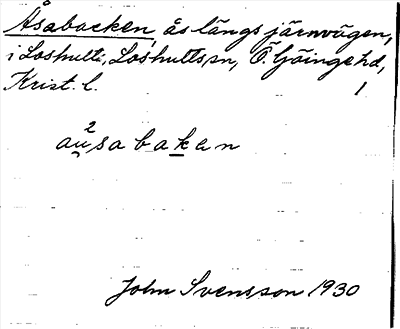 Åsabacken, ås längs järnvägen,
i Loshult, Loshults sn, Ö. Göinge hd,
Krist. l. 1
2
au̯sabaken
John Svensson 1930